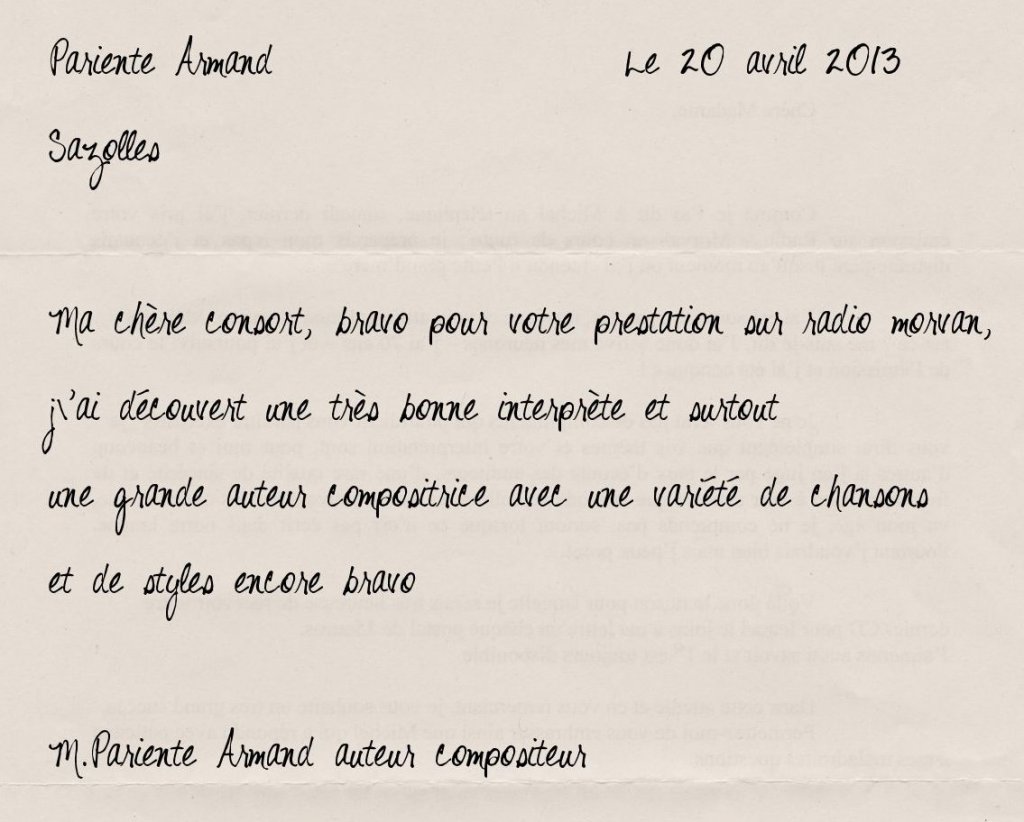 Pariente Armand Le 20 avril 2013
Sazolles
Ma chère consort, bravo pour votre prestation sur radio morvan,
j\'ai découvert une très bonne interprète et surtout
une grande auteur compositrice avec une variété de chansons
et de styles encore bravo
M.Pariente Armand auteur compositeur